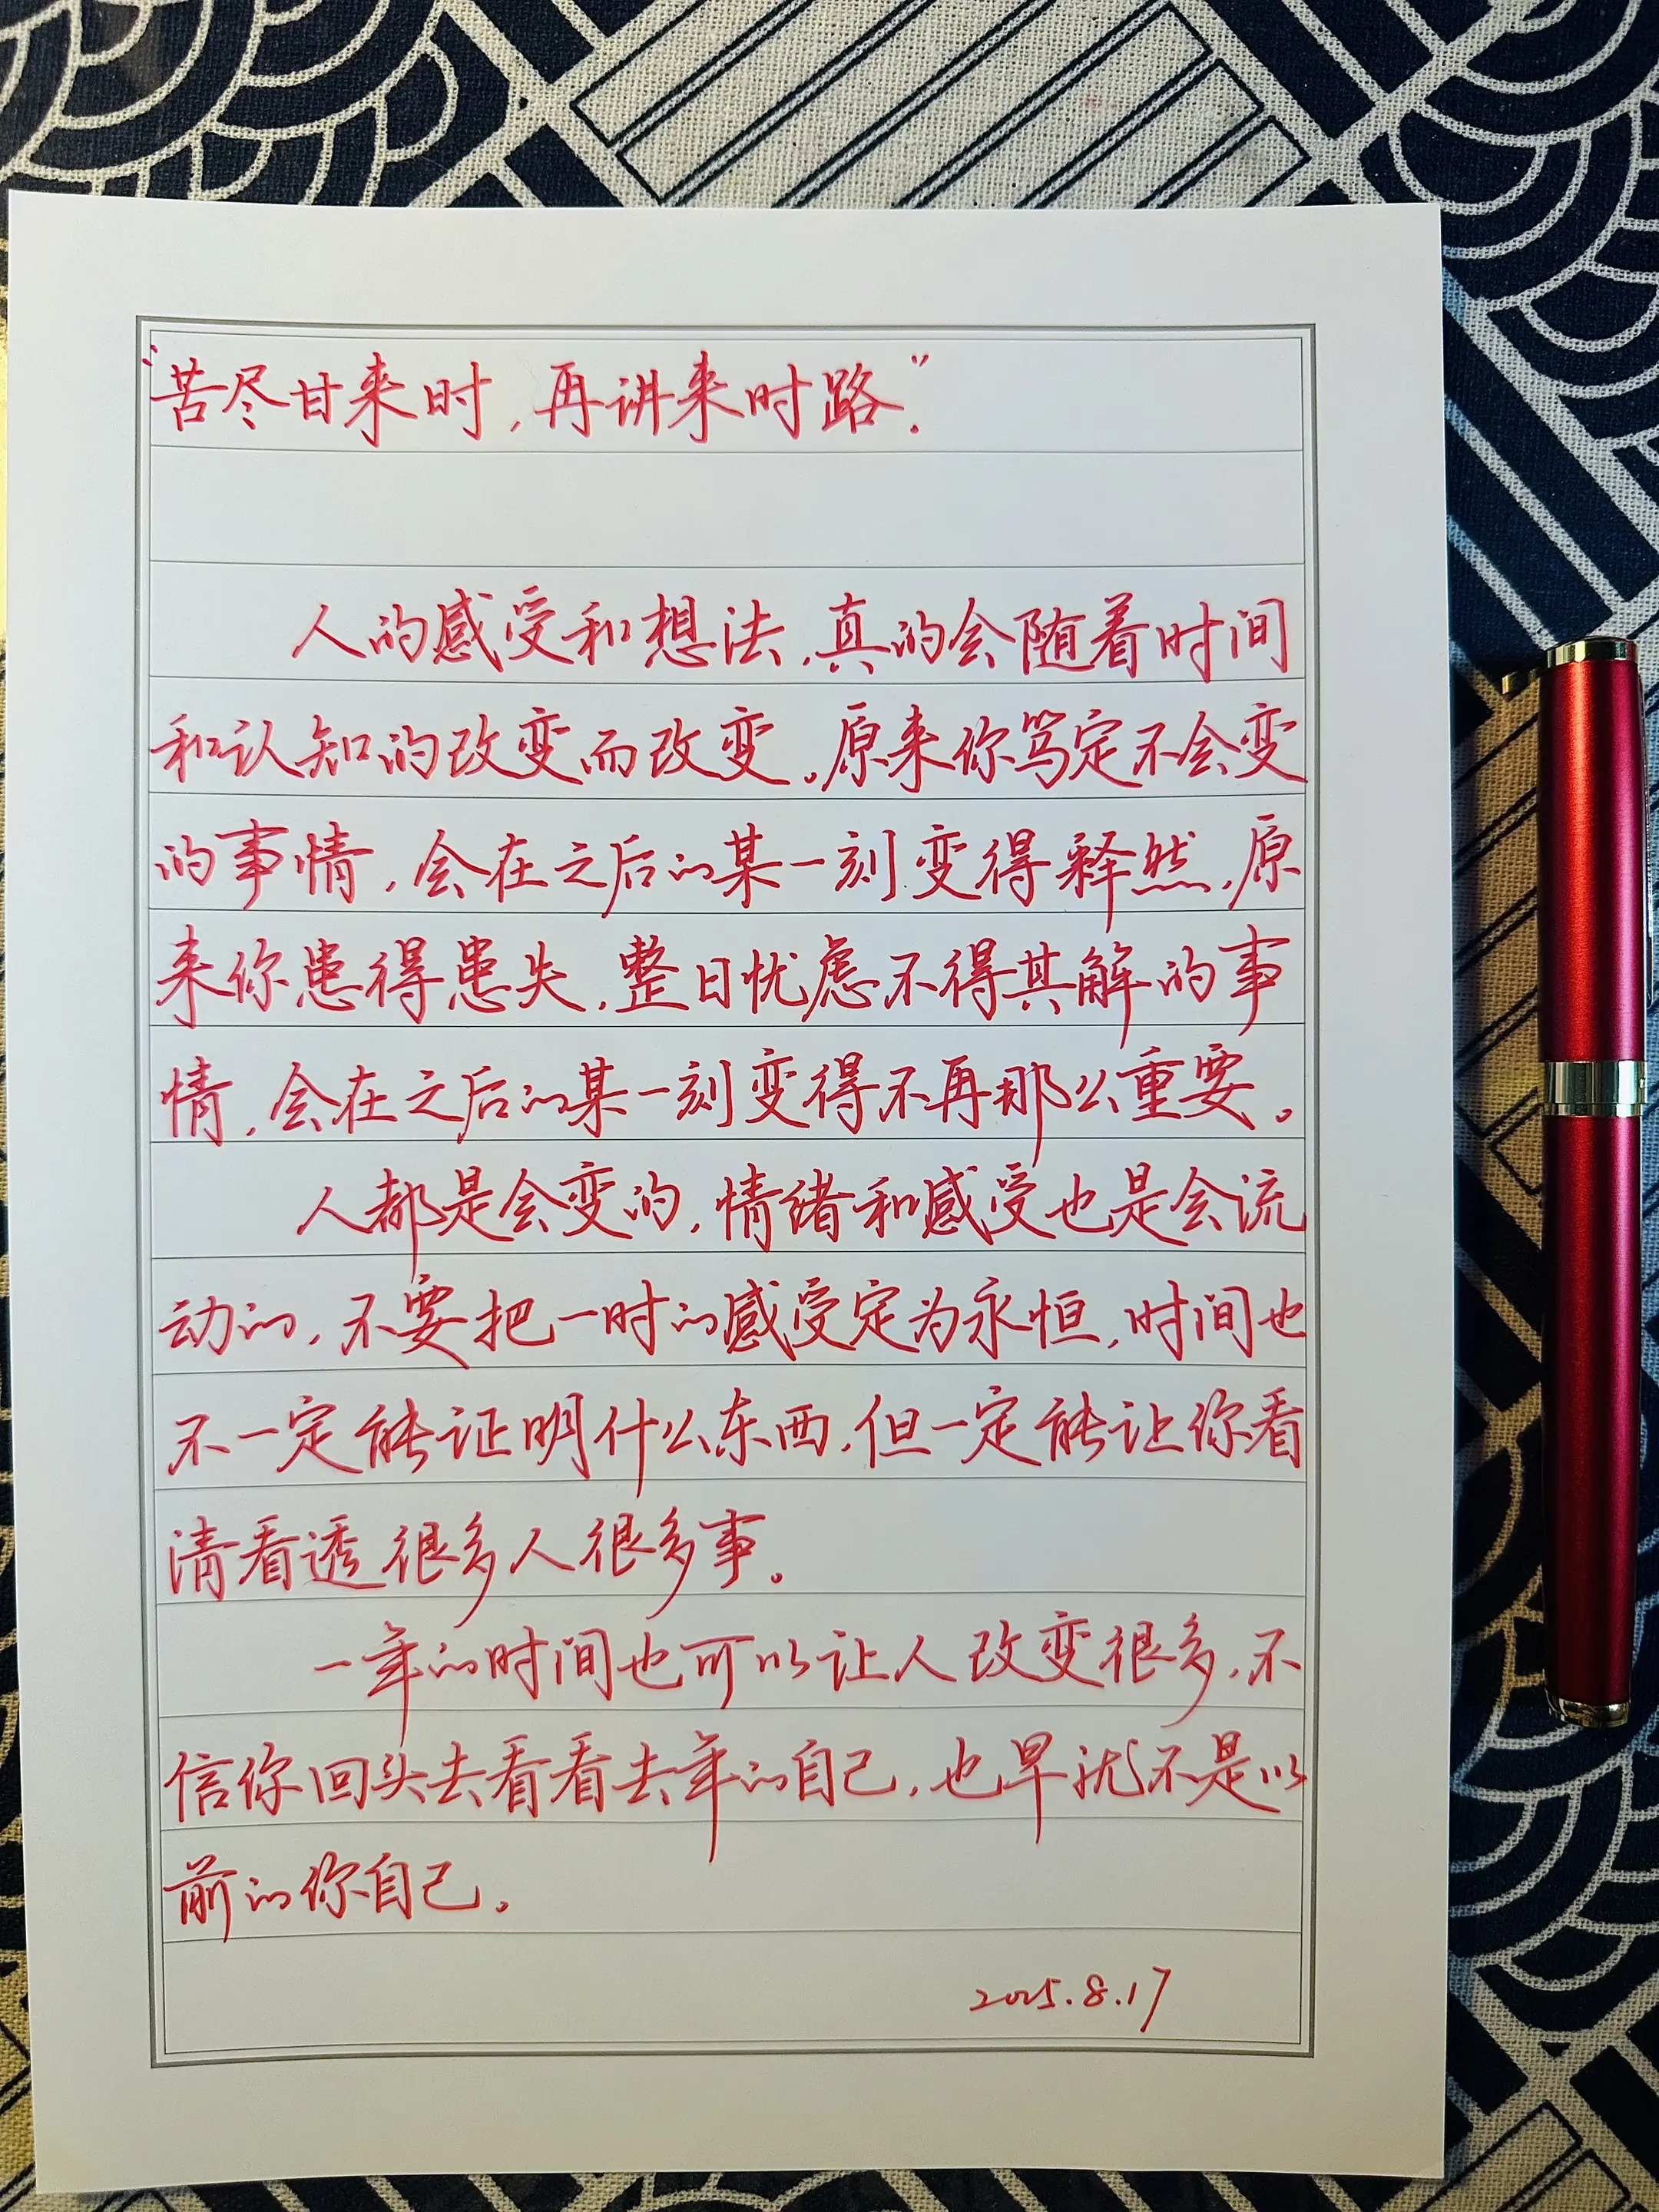 “苦尽甘来时，再讲来时路.”
人的感受和想法，真的会随着时间
和认知的改变而改变。原来你笃定不会变
的事情，会在之后的某一刻变得释然，原
来你患得患失，整日忧虑不得其解的事
情，会在之后的某一刻变得不再那么重要。
人都是会变的，情绪和感受也是会流
动的，不要把一时的感受定为永恒，时间也
不一定能证明什么东西，但一定能让你看
清看透很多人很多事。
一年的时间也可以让人改变很多，不
信你回头去看看去年的自己，也早就不是以
前的你自己。
2025.8.17